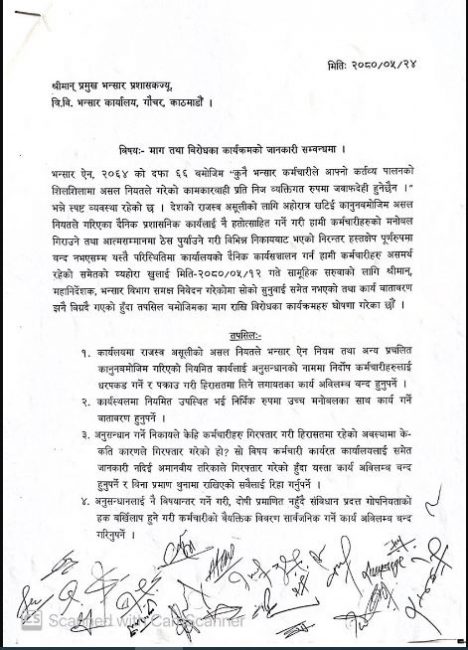 मितिः २०८०/०५/२४
श्रीमान् प्रमुख भन्सार प्रशासकज्यू,
त्रि.वि. भन्सार कार्यालय, गौचर, काठमाडौं ।
विषयः- माग तथा विरोधका कार्यक्रमको जानकारी सम्वन्धमा ।
भन्सार ऐन, २०६४ को दफा ६६ वमोजिम "कुनै भन्सार कर्मचारीले आफ्नो कर्तव्य पालनको
शिलशिलामा असल नियतले गरेको कामकारवाही प्रति निज व्यक्तिगत रुपमा जवाफदेही हुनेछैन ।"
भन्ने स्पष्ट व्यवस्था रहेको छ । देशको राजस्व असूलीको लागि अहोरात्र खटिई कानुनवमोजिम असल
नियतले गरिएका दैनिक प्रशासनिक कार्यलाई नै हतोत्साहित गर्ने गरी हामी कर्मचारीहरुको मनोवल
गिराउने तथा आत्मसम्मानमा ठेस पुर्याउने गरी विभिन्न निकायवाट भएको निरन्तर हस्तक्षेप पूर्णरुपमा
वन्द नभएसम्म यस्तै परिस्थितिमा कार्यालयको दैनिक कार्यसञ्चालन गर्न हामी कर्मचारीहरु असमर्थ
रहेको समेतको व्यहोरा खुलाई मिति-२०८०/०५/१२ गते सामूहिक सरुवाको लागि श्रीमान्,
महानिर्देशक, भन्सार विभाग समक्ष निवेदन गरेकोमा सोको सुनुवाई समेत नभएको तथा कार्य वातावरण
झनै विग्रदै गएको हुँदा तपसिल वमोजिमका माग राखि विरोधका कार्यक्रमहरु घोषणा गरेका छौं ।
तपसिलः-
१. कार्यालयमा राजस्व असूलीको असल नियतले भन्सार ऐन नियम तथा अन्य प्रचलित
कानुनवमोजिम गरिएको नियमित कार्यलाई अनुसन्धानको नाममा निर्दोष कर्मचारीहरुलाई
धरपकड गर्ने र पक्राउ गरी हिरासतमा लिने लगायतका कार्य अविलम्व वन्द हुनुपर्ने ।
२. कार्यस्थलमा नियमित उपस्थित भई निर्भिक रुपमा उच्च मनोवलका साथ कार्य गर्ने
वातावरण हुनुपर्ने ।
३. अनुसन्धान गर्ने निकायले केहि कर्मचारीहरु गिरफ्तार गरी हिरासतमा रहेको अवस्थामा के-
कति कारणले गिरफ्तार गरेको हो? सो विषय कर्मचारी कार्यरत कार्यालयलाई समेत
जानकारी नदिई अमानवीय तरिकाले गिरफ्तार गरेको हुँदा यस्ता कार्य अविलम्व वन्द
हुनुपर्ने र विना प्रमाण थुनामा राखिएको सवैलाई रिहा गर्नुपर्ने ।
४. अनुसन्धानलाई नै विषयान्तर गर्ने गरी, दोषी प्रमाणित नहुँदै संविधान प्रदत्त गोपनियताको
हक वर्खिलाप हुने गरी कर्मचारीको वैयक्तिक विवरण सार्वजनिक गर्ने कार्य अविलम्व वन्द
गरिनुपर्ने ।
CS Scanned with CamScanner